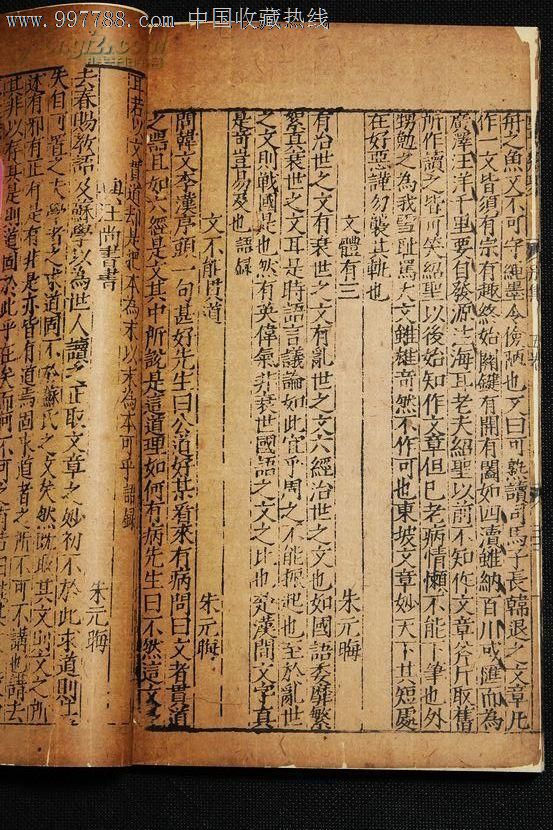 www.997788.com 中国收藏热线
舟之魚又不可守繩墨令儉陋也又曰可熟讀司馬子長韓退之文章凡
作一文皆須有宗有趣終始關鍵有開有闔如四瀆雖納百川或匯而為
廣澤汪洋千里要自發源注海耳老夫紹聖以前不知作文章斧斤取舊
所作讀之皆可笑紹聖以後始知作文章但巳老病惰懶不能下筆也外
甥勉之為我雪恥罵犬文雖雄奇然不作可也東坡文章妙天下其短處
在好罵謹勿襲其軌也
文體有三 朱元晦
有治世之文有衰世之文有亂世之文六經治世之文也如國語委靡繁
絮真衰世之文耳是時語言議論如此宜乎周之不能振起也至於亂世
之文則戰國是也然有英偉氣非衰世國語之文之比也 漢間文字真
是奇豈易及也語錄
文不能貫道 朱元晦
問韓文李漢序頭一句甚好先生曰公道好某看來有病問曰文者貫道
之器且如六經是文其中所說是這道理如何有病先生曰不然這文
且若以文貫道却是把本為末以末為本可乎語錄
與汪尚書書 朱元晦
去春賜教語及蘇學以為世人讀之止取文章之妙初不於此求道則
失自可置之夫學者之求道固不於蘇氏之文矣然既取其文則文之所
述有邪有正有是有非是亦皆有道焉固求道者之所不可不講也講去
其非以存其是則道固於此乎在矣而何不可之